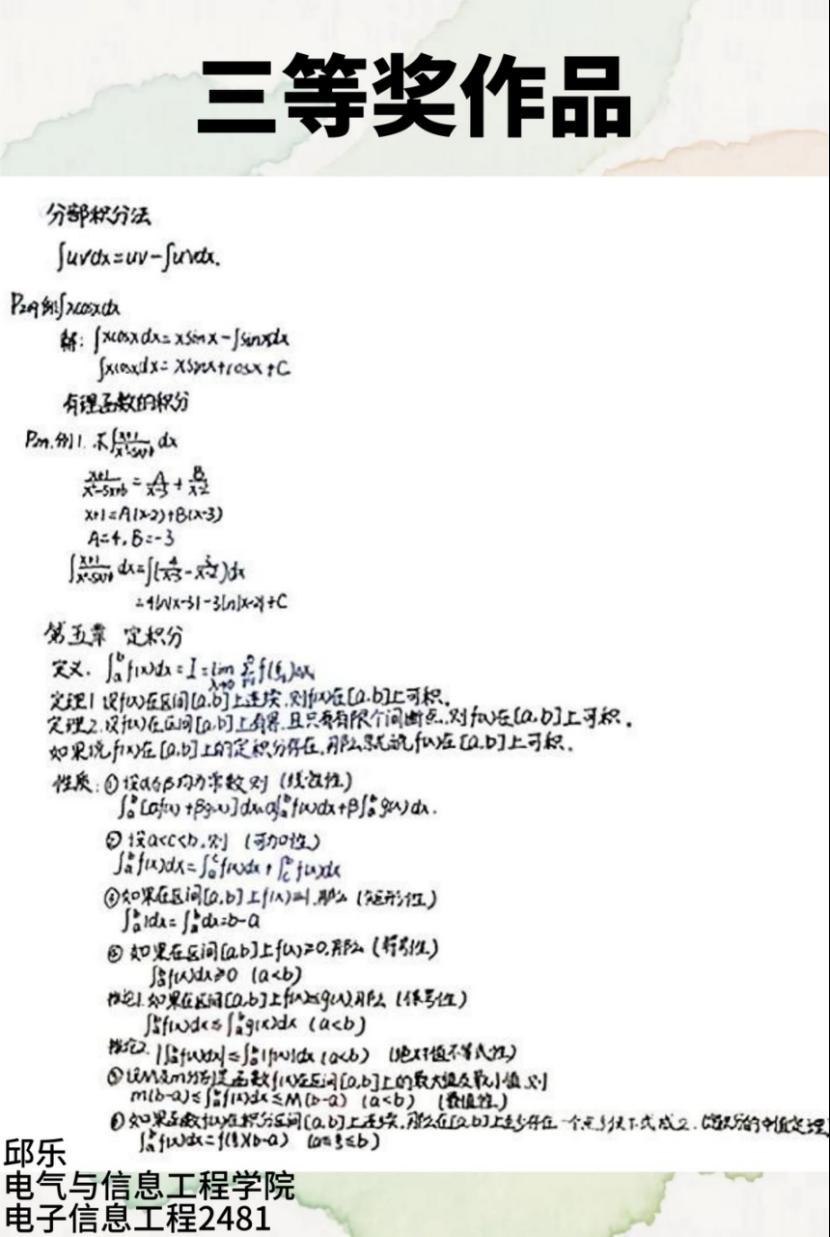 三等奖作品
分部积分法
∫uv'dx=uv-∫u'vdx.
例 ∫xcosxdx
解: ∫xcosxdx=xsinx-∫sinxdx
∫xcosxdx=xsinx+cosx+C
有理函数的积分
例1. 求∫(x+1)/(x²-5x+6) dx
(x+1)/(x²-5x+6)=A/(x-3)+B/(x-2)
x+1=A(x-2)+B(x-3)
A=4, B=-3
∫(x+1)/(x²-5x+6) dx=∫(4/(x-3)-3/(x-2))dx
=4ln|x-3|-3ln|x-2|+C
第五章 定积分
定义. ∫ₐᵇf(x)dx=I=lim(λ→0) Σ(i=1,n) f(ξᵢ)Δxᵢ
定理1 设f(x)在区间[a,b]上连续,则f(x)在[a,b]上可积.
定理2.设f(x)在区间[a,b]上有界,且只有有限个间断点,则f(x)在[a,b]上可积.
如果说f(x)在[a,b]上的定积分存在,那么就说f(x)在[a,b]上可积.
性质:①设α与β均为常数,则(线性性)
∫ₐᵇ[αf(x)+βg(x)]dx=α∫ₐᵇf(x)dx+β∫ₐᵇg(x)dx.
② 设a<c<b,则 (可加性)
∫ₐᵇf(x)dx=∫ₐᶜf(x)dx+∫꜀ᵇf(x)dx
如果在区间[a,b]上f(x)≡1,那么(矩形性)
∫ₐᵇ1dx=∫ₐᵇdx=b-a
如果在区间[a,b]上f(x)≥0,那么(符号性)
∫ₐᵇf(x)dx≥0 (a<b)
推论1.如果在区间[a,b]上f(x)≤g(x),那么(保号性)
∫ₐᵇf(x)dx≤∫ₐᵇg(x)dx (a<b)
推论2. |∫ₐᵇf(x)dx|≤∫ₐᵇ|f(x)|dx (a<b) (绝对值不等式性)
设M及m分别是函数f(x)在区间[a,b]上的最大值及最小值,则
m(b-a)≤∫ₐᵇf(x)dx≤M(b-a) (a<b) (最值性)
如果函数f(x)在积分区间[a,b]上连续,那么在[a,b]上至少存在一个点ξ使下式成立.(定积分的中值定理)
∫ₐᵇf(x)dx=f(ξ)(b-a) (a≤ξ≤b)
邱乐
电气与信息工程学院
电子信息工程2481